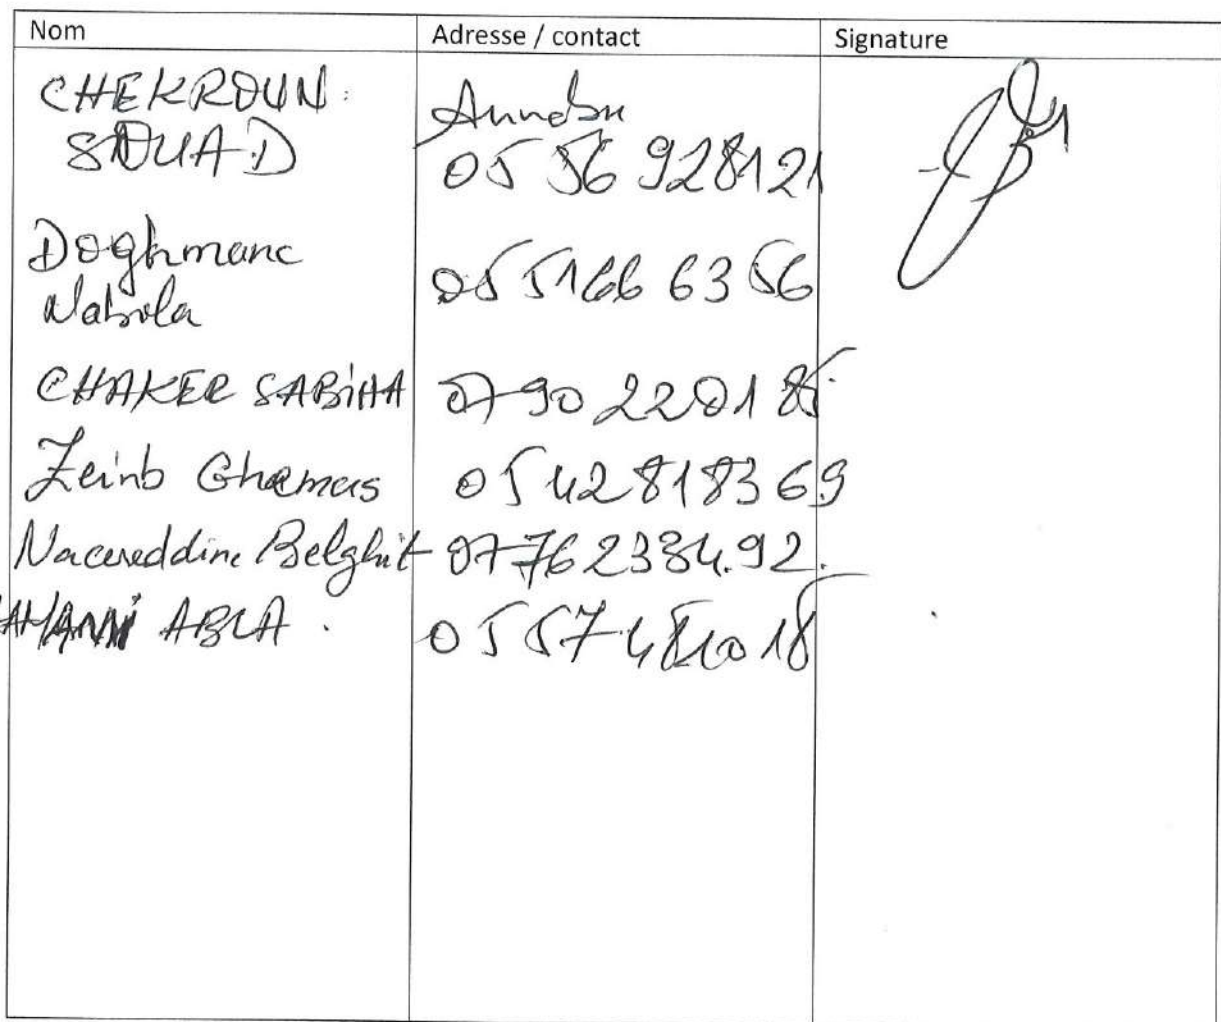 Nom Adresse / contact Signature
CHEKROUN Annaba
SOUAD 05 56 928121
Doghmane 05 5166 63 56
Nabila
CHAKER SABIHA 07 90 2201 85
Zeinb Ghemas 05 428183 69
Nacereddine Belghit 07762384.92.
ABLA 05 57 48 10 18